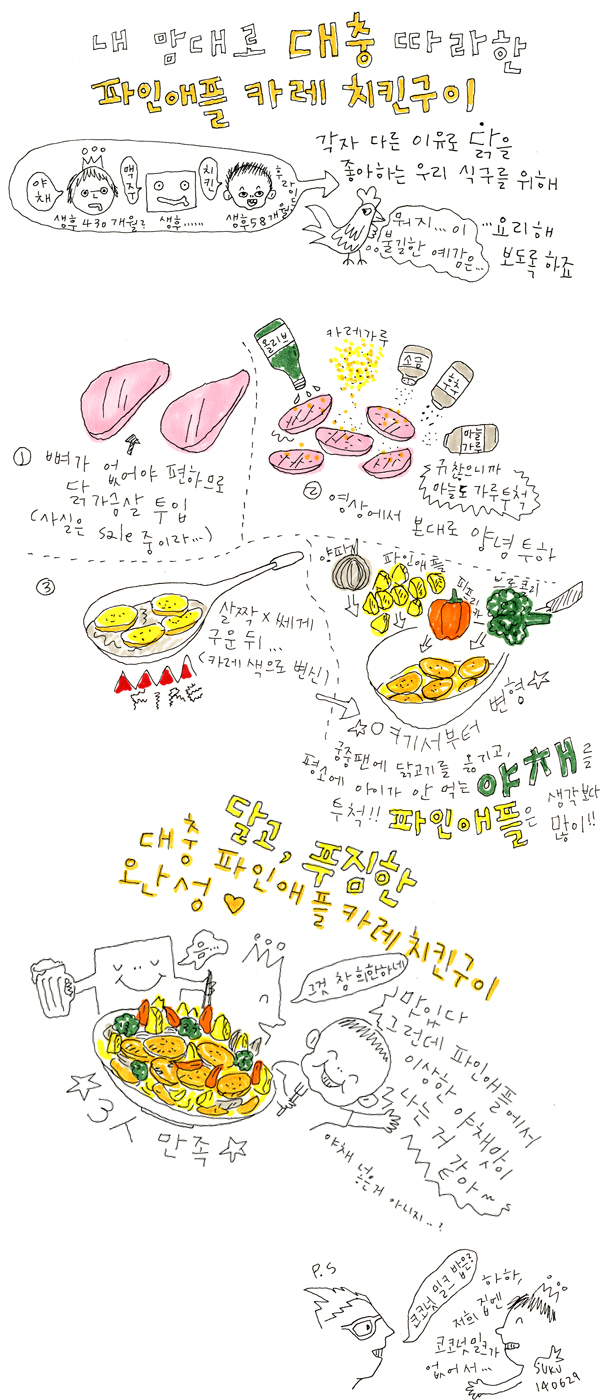 내 맘대로 대충 따라한
파인애플 카레 치킨구이
각자 다른 이유로 닭을
좋아하는 우리 식구를 위해
야채
맥주
치킨
후라이
생후 430개월?
생후......
생후58개월
뭐지... 이
불길한 예감은...
...요리해
보도록 하죠
① 뼈가 없어야 편하므로
닭가슴살 투입
(사실은 sale 중이라...)
올리브
카레가루
소금
후추
마늘
가루
귀찮으니까
마늘도 가루투척
② 영상에서 본대로 양념 투하
③
살짝 × 쎄게
구운 뒤...
(카레 색으로 변신)
FIRE
양파
파인애플
파프리카
브로콜리
☆여기서부터 변형☆
궁중팬에 닭고기를 옮기고,
평소에 아이가 안 먹는 야채를
투척!! 파인애플은 생각보다
많이!!
달고, 푸짐한
대충 파인애플 카레 치킨구이
완성♥
음...
그것 참 희한하네
맛있다
그런데 파인애플에서
이상한 야채맛이
나는 거 같
아~
야채 넣은거 아니지..?
☆3人 만족☆
P.S
코코넛 밀크 밥은?
하하,
저희 집엔
코코넛밀크가
없어서...
SUKU
140629